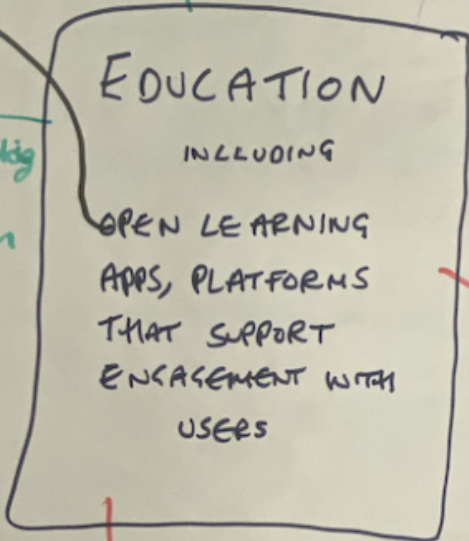 EDUCATION
INCLUDING
OPEN LEARNING
APPS, PLATFORMS
THAT SUPPORT
ENGAGEMENT WITH
USERS